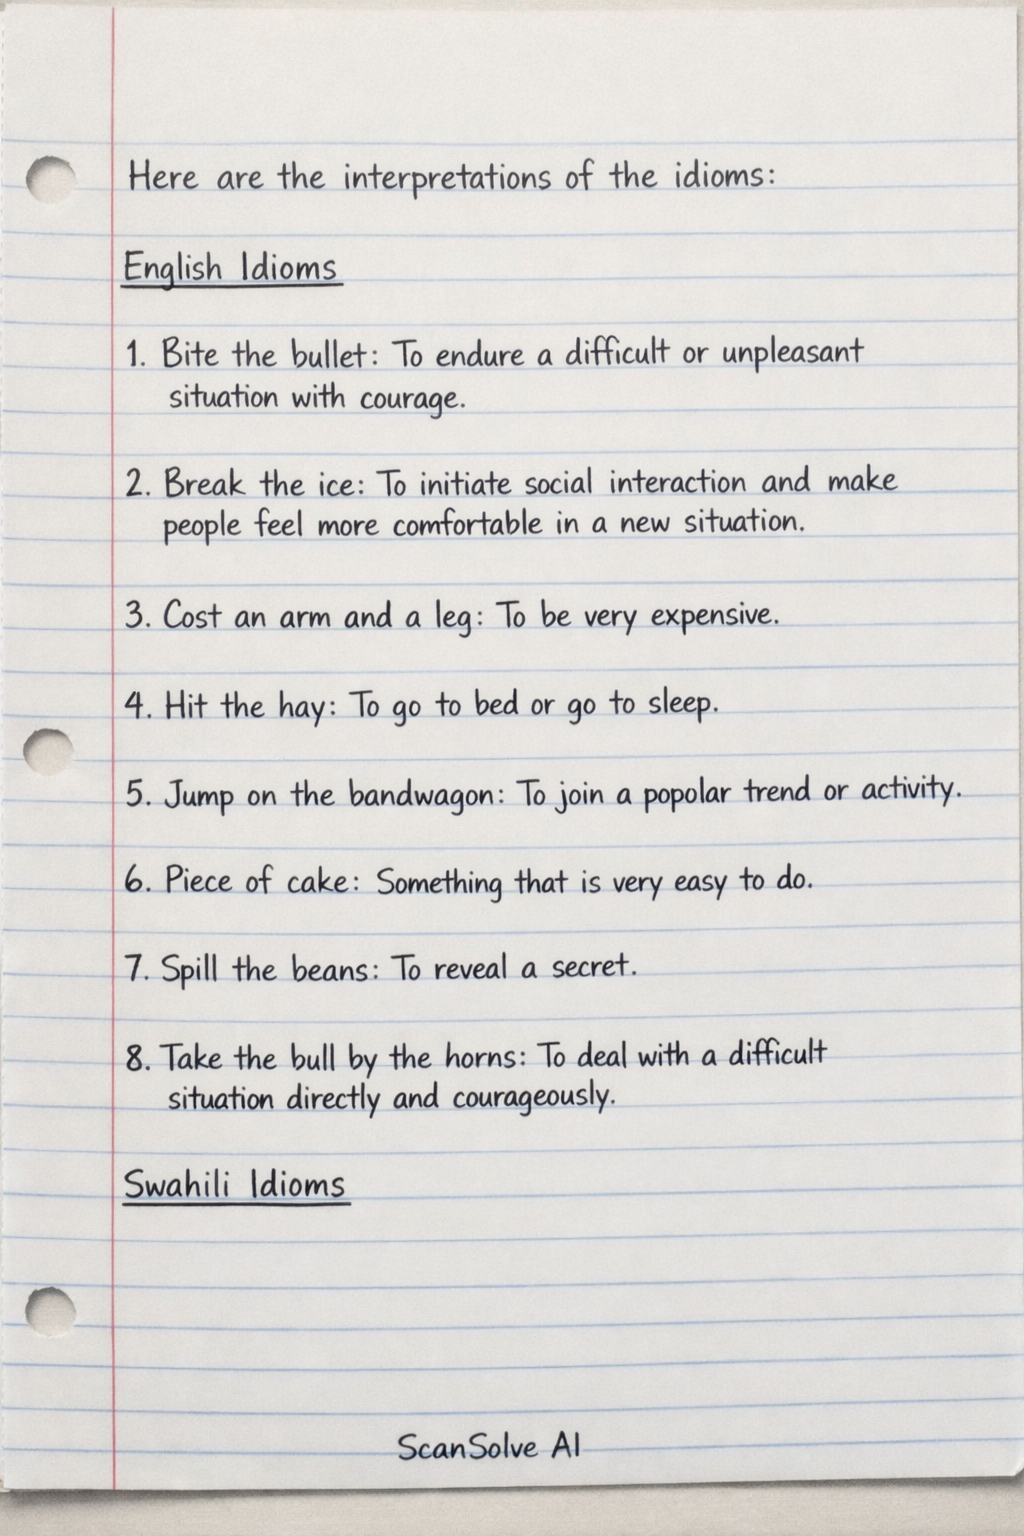 Here are the interpretations of the idioms:
English Idioms
1. Bite the bullet: To endure a difficult or unpleasant
situation with courage.
2. Break the ice: To initiate social interaction and make
people feel more comfortable in a new situation.
3. Cost an arm and a leg: To be very expensive.
4. Hit the hay: To go to bed or go to sleep.
5. Jump on the bandwagon: To join a popolar trend or activity.
6. Piece of cake: Something that is very easy to do.
7. Spill the beans: To reveal a secret.
8. Take the bull by the horns: To deal with a difficult
situation directly and courageously.
Swahili Idioms
ScanSolve AI